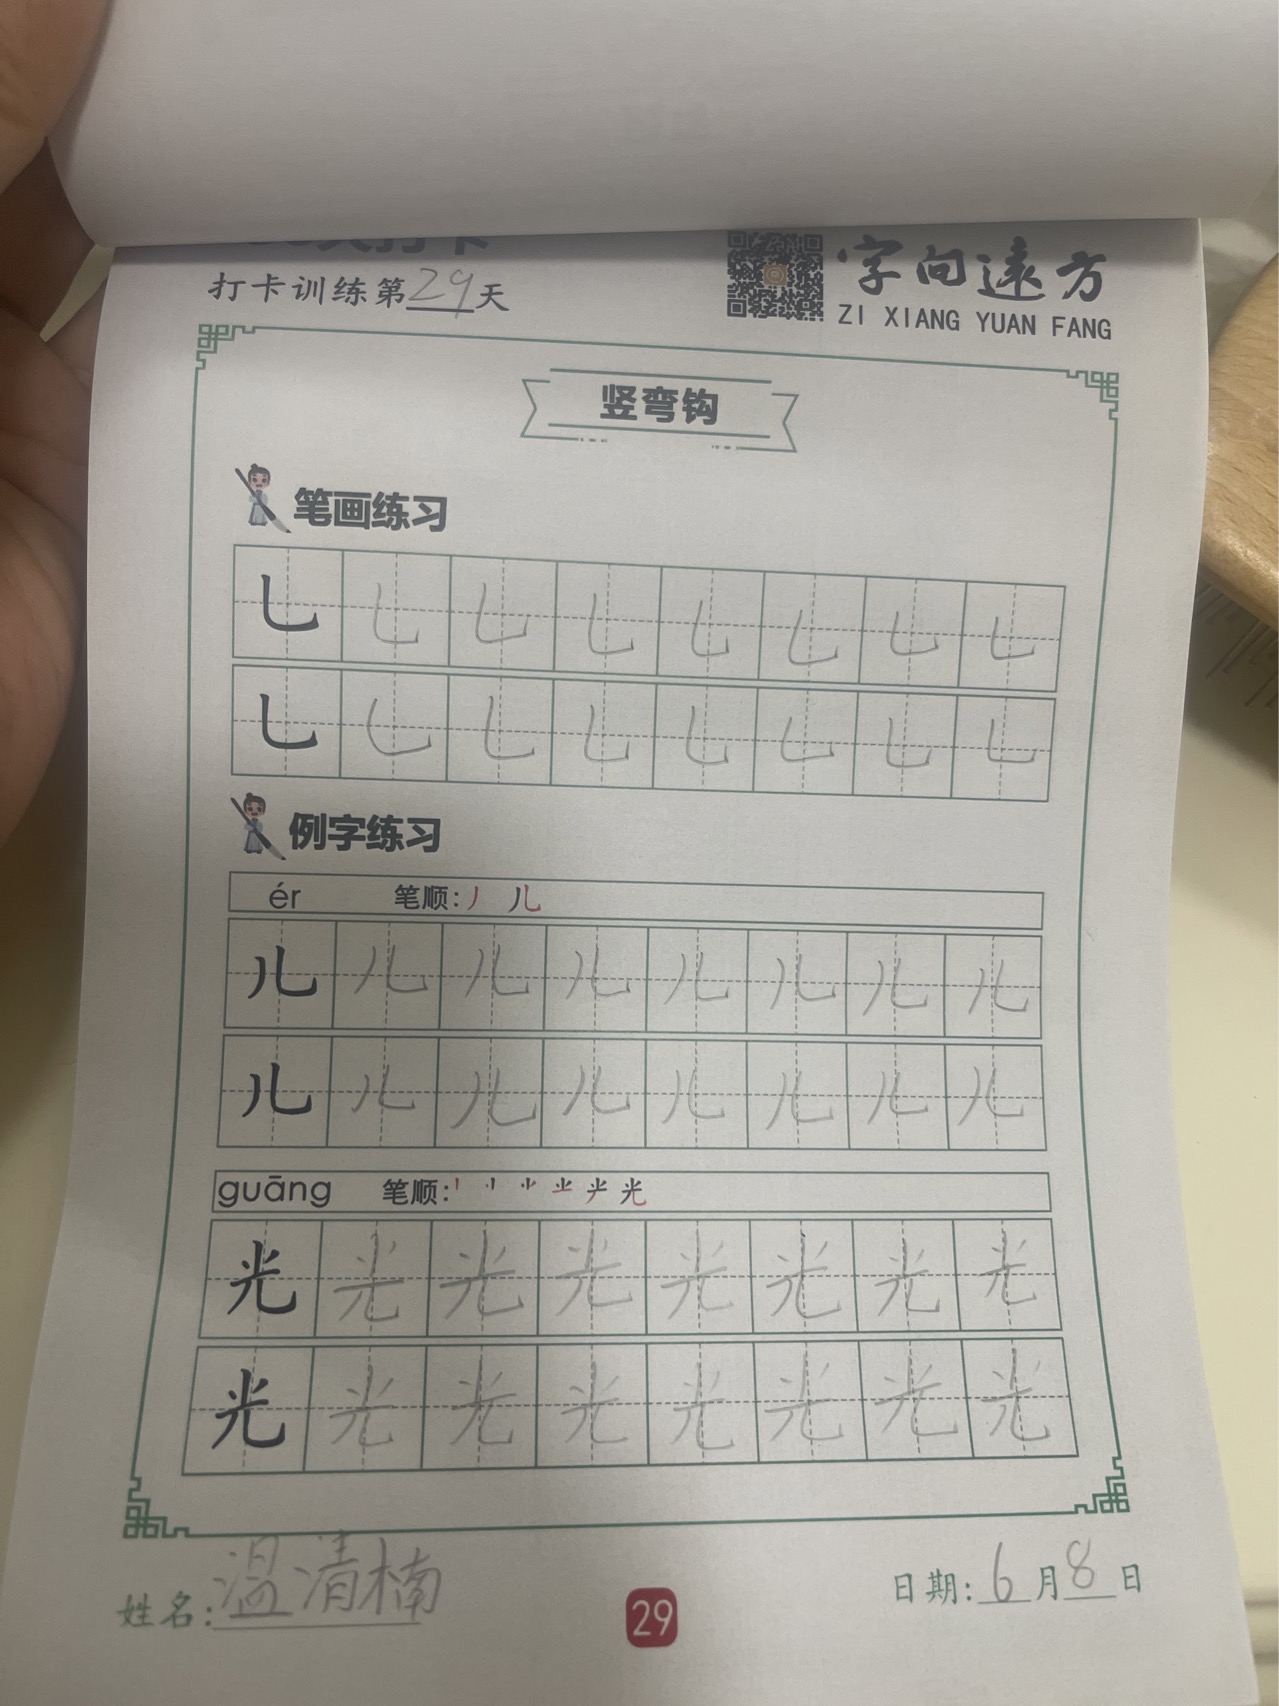 打卡训练第29天
字向远方
ZI XIANG YUAN FANG
竖弯钩
笔画练习
乚 乚 乚 乚 乚 乚 乚 乚
乚 乚 乚 乚 乚 乚 乚 乚
例字练习
ér 笔顺:丿 儿
儿 儿 儿 儿 儿 儿 儿 儿
儿 儿 儿 儿 儿 儿 儿 儿
guāng 笔顺:丨 光
光 光 光 光 光 光 光 光
光 光 光 光 光 光 光 光
姓名:温清楠
29
日期:6月8日